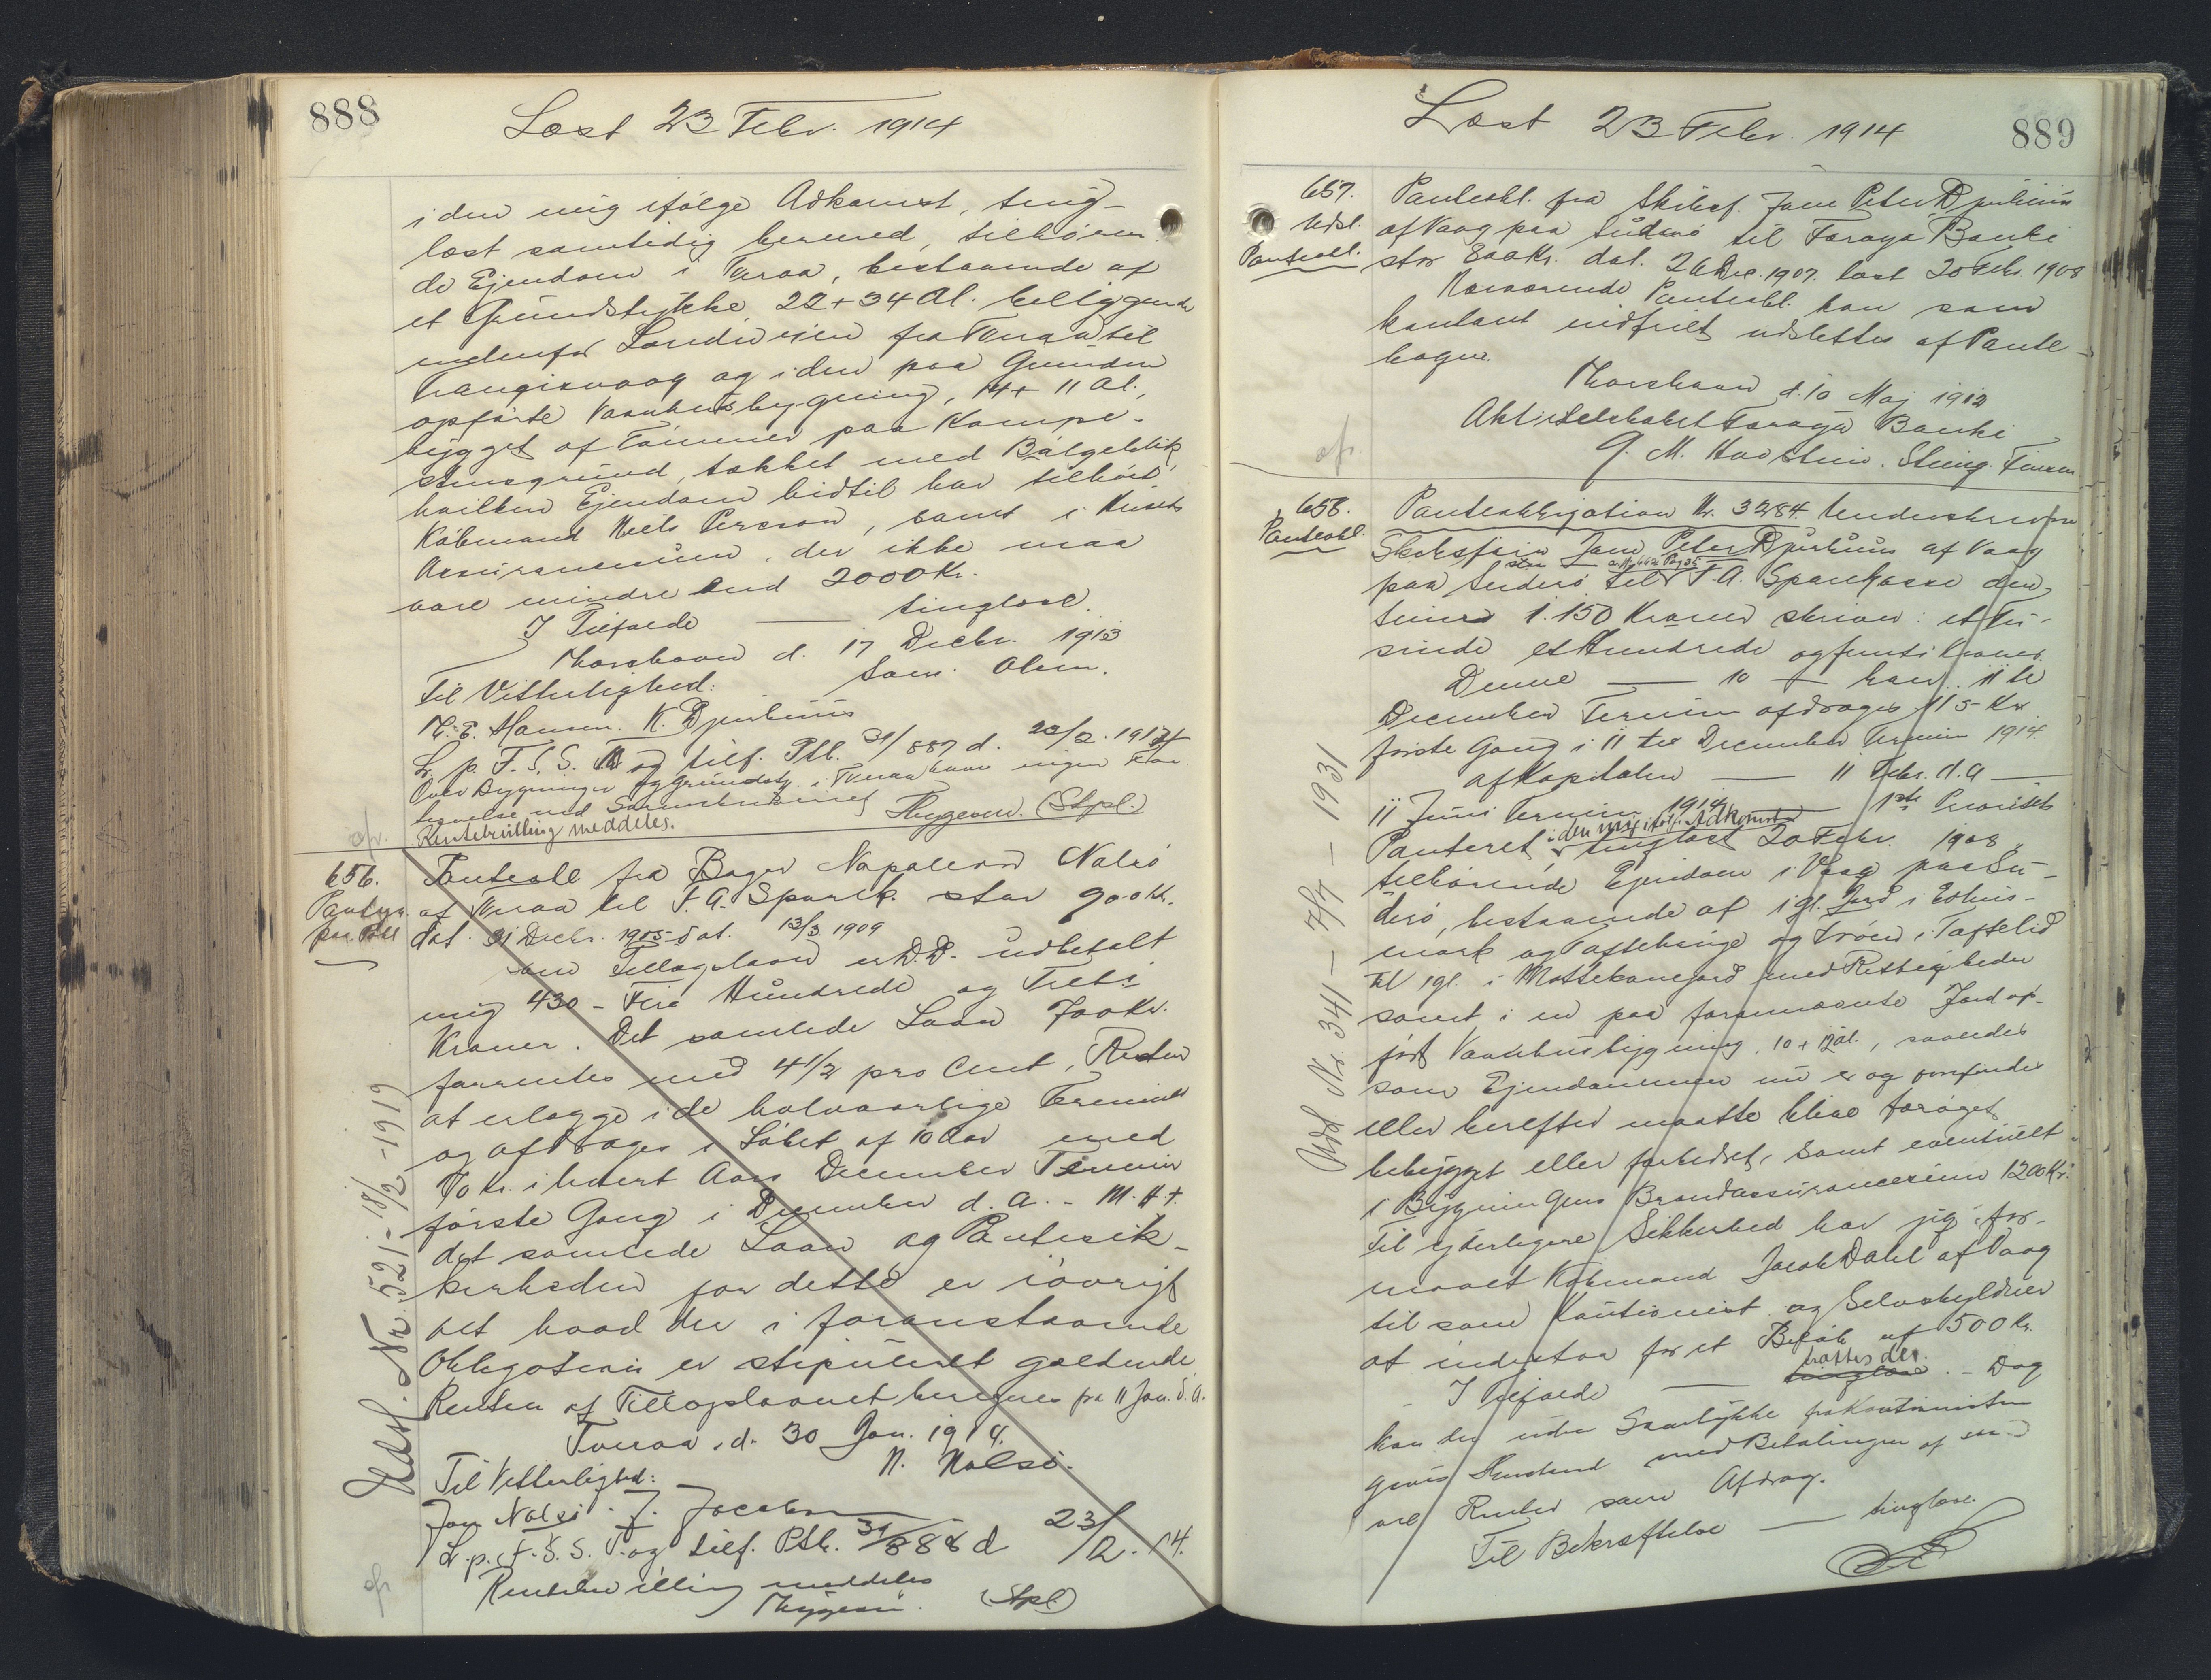 888
Læst 23 Febr. 1914
i den mig ifølge Adkomst, ting-
læst samtidig hermed, tilhøren-
de Ejendom i Tveraa, bestaaende af
et Grundstykke 22 + 34 Al. beliggende
nedenfor Landevejen fra Tveraa til
Trangisvaag og i den paa Grunden
opførte Vaanhusbygning, 14 + 11 Al.,
bygget af Tømmer paa Kampe-
stensgrund, takket med Bølgeblik,
hvilken Ejendom hidtil har tilhørt
Købmand Niels Persson, samt i Husets
Assurancesum, der ikke maa
være mindre end 2000 Kr.
I Tilfælde — tinglæse.
Thorshavn d. 17 Decbr. 1913
Til Vitterlighed: Sam. Olsen.
M. E. Hansen. K. Djurhuus
L. p. F. S. S. T og tilf. Ptb. 31/887 d. 23/2. 1914
Over Bygninger og Grundst. i Tveraa haves ingen
Rentebevilling meddeles. Thygesen. (Stpl.)
656.
Panteobl. fra Bager Napoleon Nolsø
af Tveraa til F. A. Spark. stor 900 Kr.
dat. 31 Decbr. 1905 dat. 13/3 1909
som Tillægslaan er D.D. udbetalt
mig 430 – Fire Hundrede og Treti
Kroner. Det samlede Laan 700 Kr.
forrentes med 4 1/2 pro Cent, Renten
at erlægge i de halvaarlige Terminer
og afdrages i Løbet af 10 Aar med
70 Kr. i hvert Aars December Termin
første Gang i December d. A. – M. H. t.
det samlede Laan og Pantesik-
kerheden for dette er iøvrigt
alt hvad der i foranstaaende
Obligation er stipuleret gældende
Renten af Tillægslaanet beregnes fra 11 Jan. d. A.
Tveraa, d. 30 Jan. 1914.
Til Vitterlighed: N. Nolsø.
Joen Nolsø. J. Jacobsen
L. p. F. S. S. T. og tilf. Ptb. 31/888 d 23/2. 14.
Rentebevilling meddeles
Thygesen. (Stpl)
Udsl. Nr. 521 – 18/2 – 1919
Læst 23 Febr. 1914
889
657.
Udsl.
Panteobl.
Panteobl. fra Skibsf. Jens Peter Djurhuus
af Vaag paa Suderø til Føroya Banki
stor 800 Kr. dat. 26 Dec. 1907. læst 20 Febr. 1908
Nærværende Panteobl. kan som
kontant indfriet udslettes af Pante-
bogen.
Thorshavn d. 10 Maj 1912
Aktieselskabet Føroya Banki
658.
Panteobl.
Panteobligation Nr. 3284. Underskrevne
Skibsfører Jens Peter Djurhuus af Vaag
paa Suderø til F. A. Sparekasse den
Summa 1.150 Kroner skriver: et Tu-
sinde et Hundrede og femti Kroner.
Denne — 10 — hver 11te
December Termin afdrages 115 Kr
første Gang i 11te December Termin 1914.
af Kapitalen — 11 Febr. d. A —
11 Juni Termin 1914 — 1ste Prioritets
Panteret i den mig ifølg. Adkomst tinglæst 20 Febr. 1908
tilhørende Ejendom i Vaag paa Su-
derø, bestaaende af 1 gl. Jord i
samt i en paa førnævnte Jord op-
ført Vaanhusbygning, 10 + 12 al., saaledes
som Ejendommene nu er og forefindes
eller herefter maatte blive forøget
bebygget eller forbedret, samt eventuelt
i Bygningens Brandassurancesum 1200 Kr.
Til yderligere Sikkerhed har jeg for-
maaet Købmand Jacob Dahl af Vaag
til som Kautionist og Selvskyldner
at indestaa for et Beløb af 500 Kr.
I Tilfælde — træffes der. – Dog
kan der uden Samtykke fra Kautionisten
gives Henstand med Betalingen af saa-
vel Renter som Afdrag.
Til Bekræftelse — tinglæse.
Udsl. Nr. 341 – 7/7 – 1931